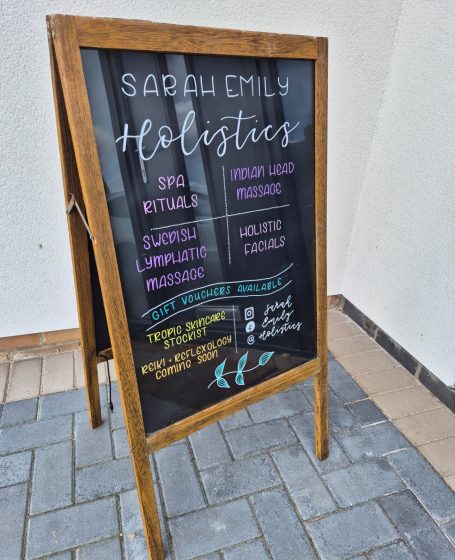 SARAH EMILY
Holistics
SPA
RITUALS
INDIAN HEAD
MASSAGE
SWEDISH
LYMPHATIC
MASSAGE
HOLISTIC
FACIALS
GIFT VOUCHERS AVAILABLE
TROPIC SKINCARE
STOCKIST
REIKI + REFLEXOLOGY
COMING SOON
Sarah
Emily
Holistics